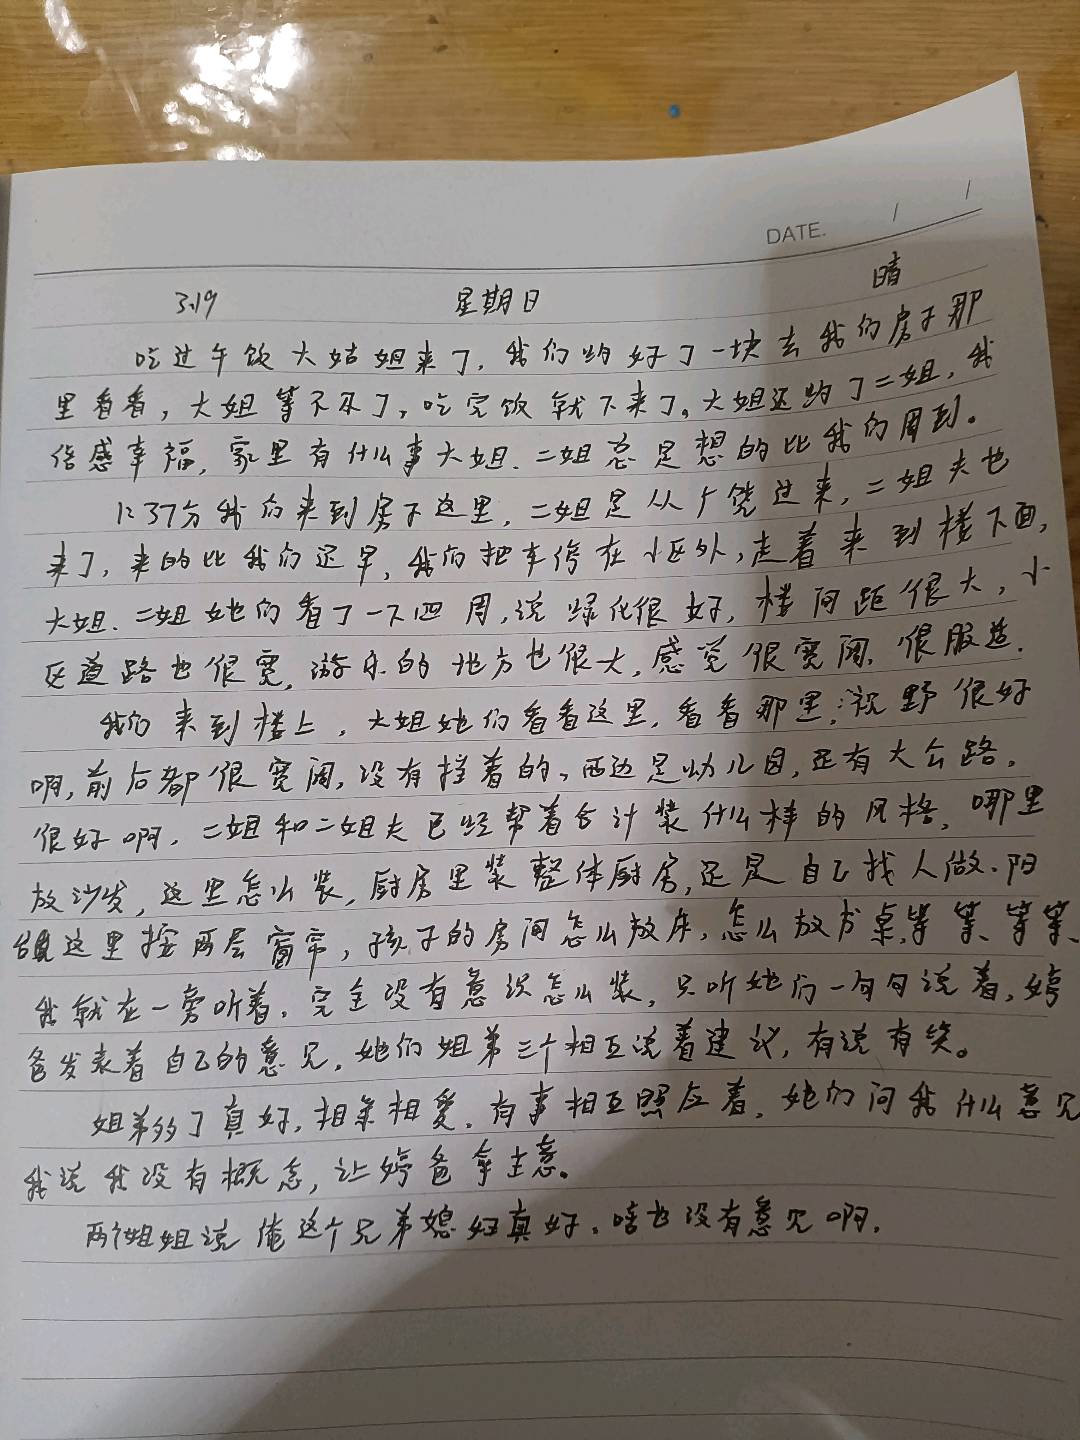 DATE. / /
3.19 星期日 晴
吃过午饭大姑姐来了，我们约好了一块去我们房子那
里看看，大姐等不及了，吃完饭就下来了。大姐还约了二姐，我
倍感幸福，家里有什么事大姐、二姐总是想的比我们周到。
12:37分我们来到房子这里，二姐是从厂饶过来，二姐夫也
来了，来的比我们还早，我们把车停在小区外，走着来到楼下面，
大姐、二姐她们看了一下四周，说绿化很好，楼间距很大，小
区道路也很宽，游乐的地方也很大，感觉很宽阔、很服送.
我们来到楼上，大姐她们看看这里，看看那里：视野很好
啊，前后都很宽阔，没有挡着的，西边是幼儿园，还有大公路。
很好啊，二姐和二姐夫已经帮着合计装什么样的风格，哪里
放沙发，这里怎么装，厨房里装整体厨房，还是自己找人做、阳
这里按两层窗帘，孩子的房间怎么放床，怎么放书桌，等等、等等、
我就在一旁听着，完全没有意识怎么装，只听她们一句句说着，婷
爸发表着自己的意见，她们姐弟三个相互说着建议，有说有笑。
姐弟多了真好，相亲相爱，有事相互照应着，她们问我什么意见
我说我没有概念，让婷爸拿主意。
两个姐姐说俺这个兄弟媳妇真好，啥也没有意见啊，